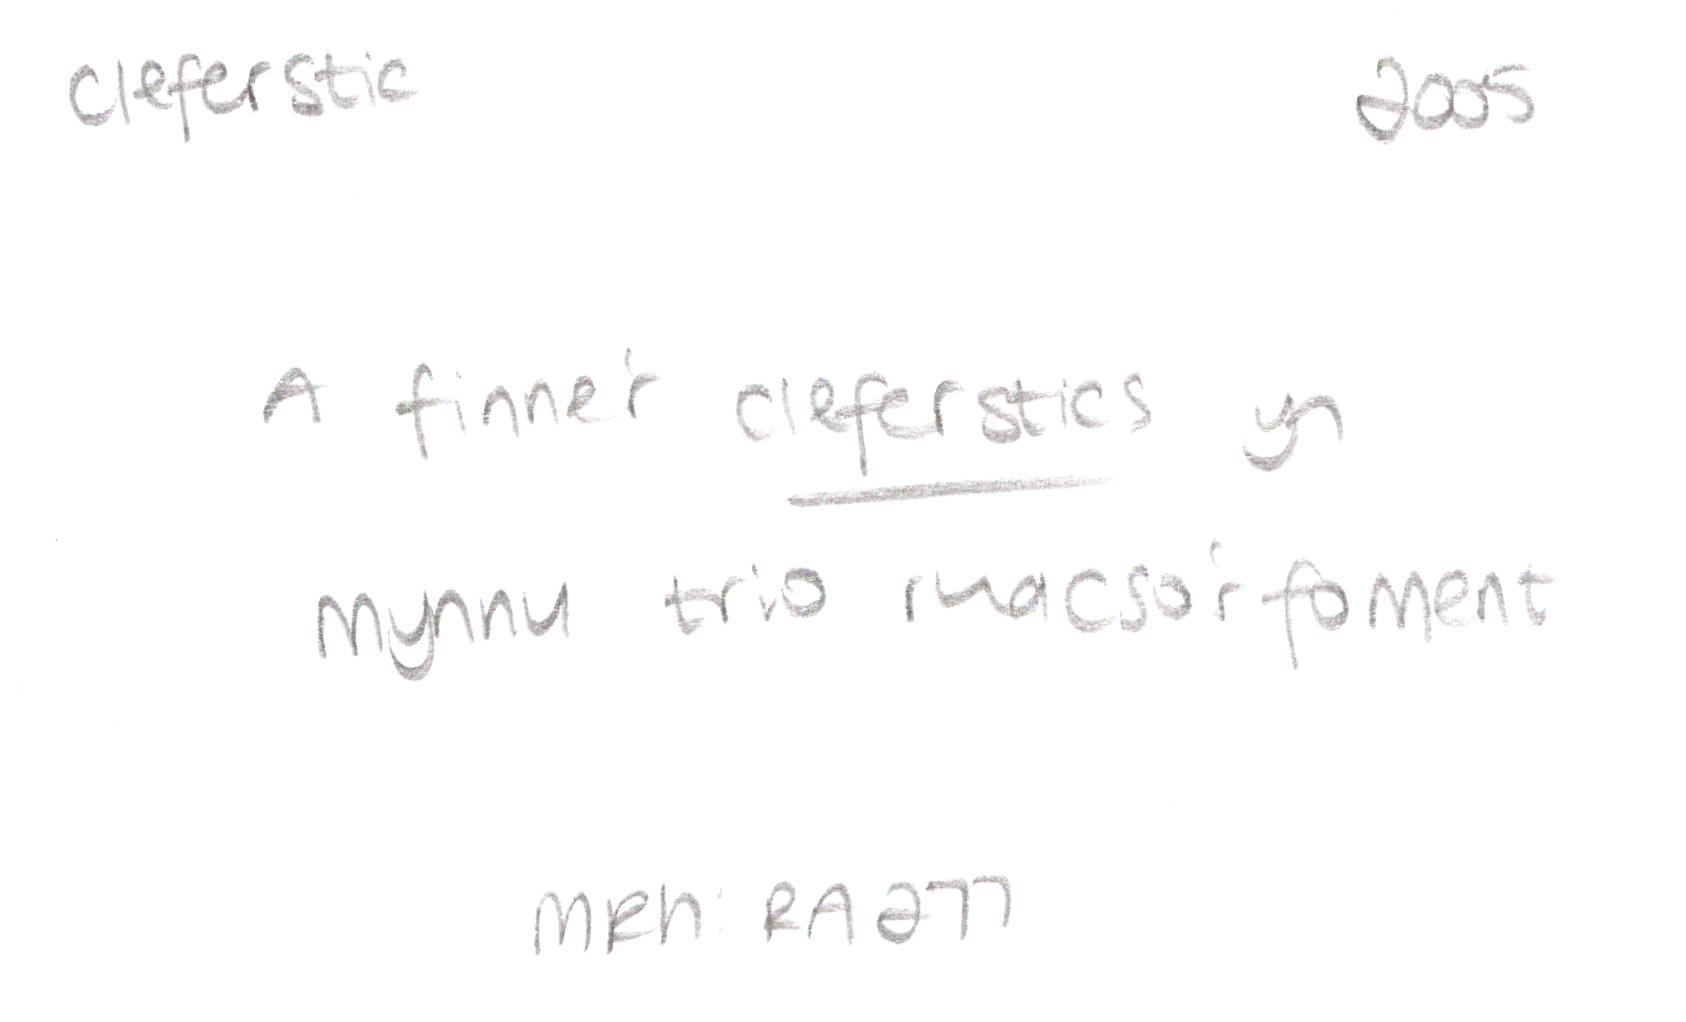 cleferstic 2005
A finne'r cleferstics yn
mynnu trio rhacso'r foment
MRh: RA277